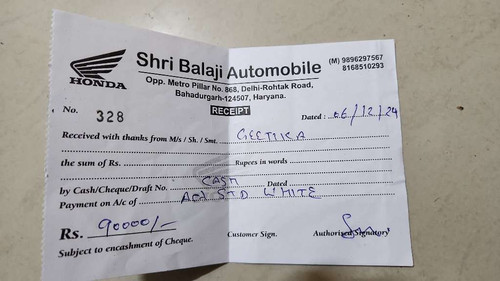 Shri Balaji Automobile
(M) 9896297567
8168510293
HONDA
Opp. Metro Pillar No. 868, Delhi-Rohtak Road,
Bahadurgarh-124507, Haryana.
RECEIPT
No. 328
Dated : 06/12/24
Received with thanks from M/s / Sh. / Smt. GEETIKA
the sum of Rs. Rupees in words
by Cash/Cheque/Draft No. CASH Dated
Payment on A/c of STD WHITE
Rs. 90000/-
Subject to encashment of Cheque.
Customer Sign.
Authorised Signatory